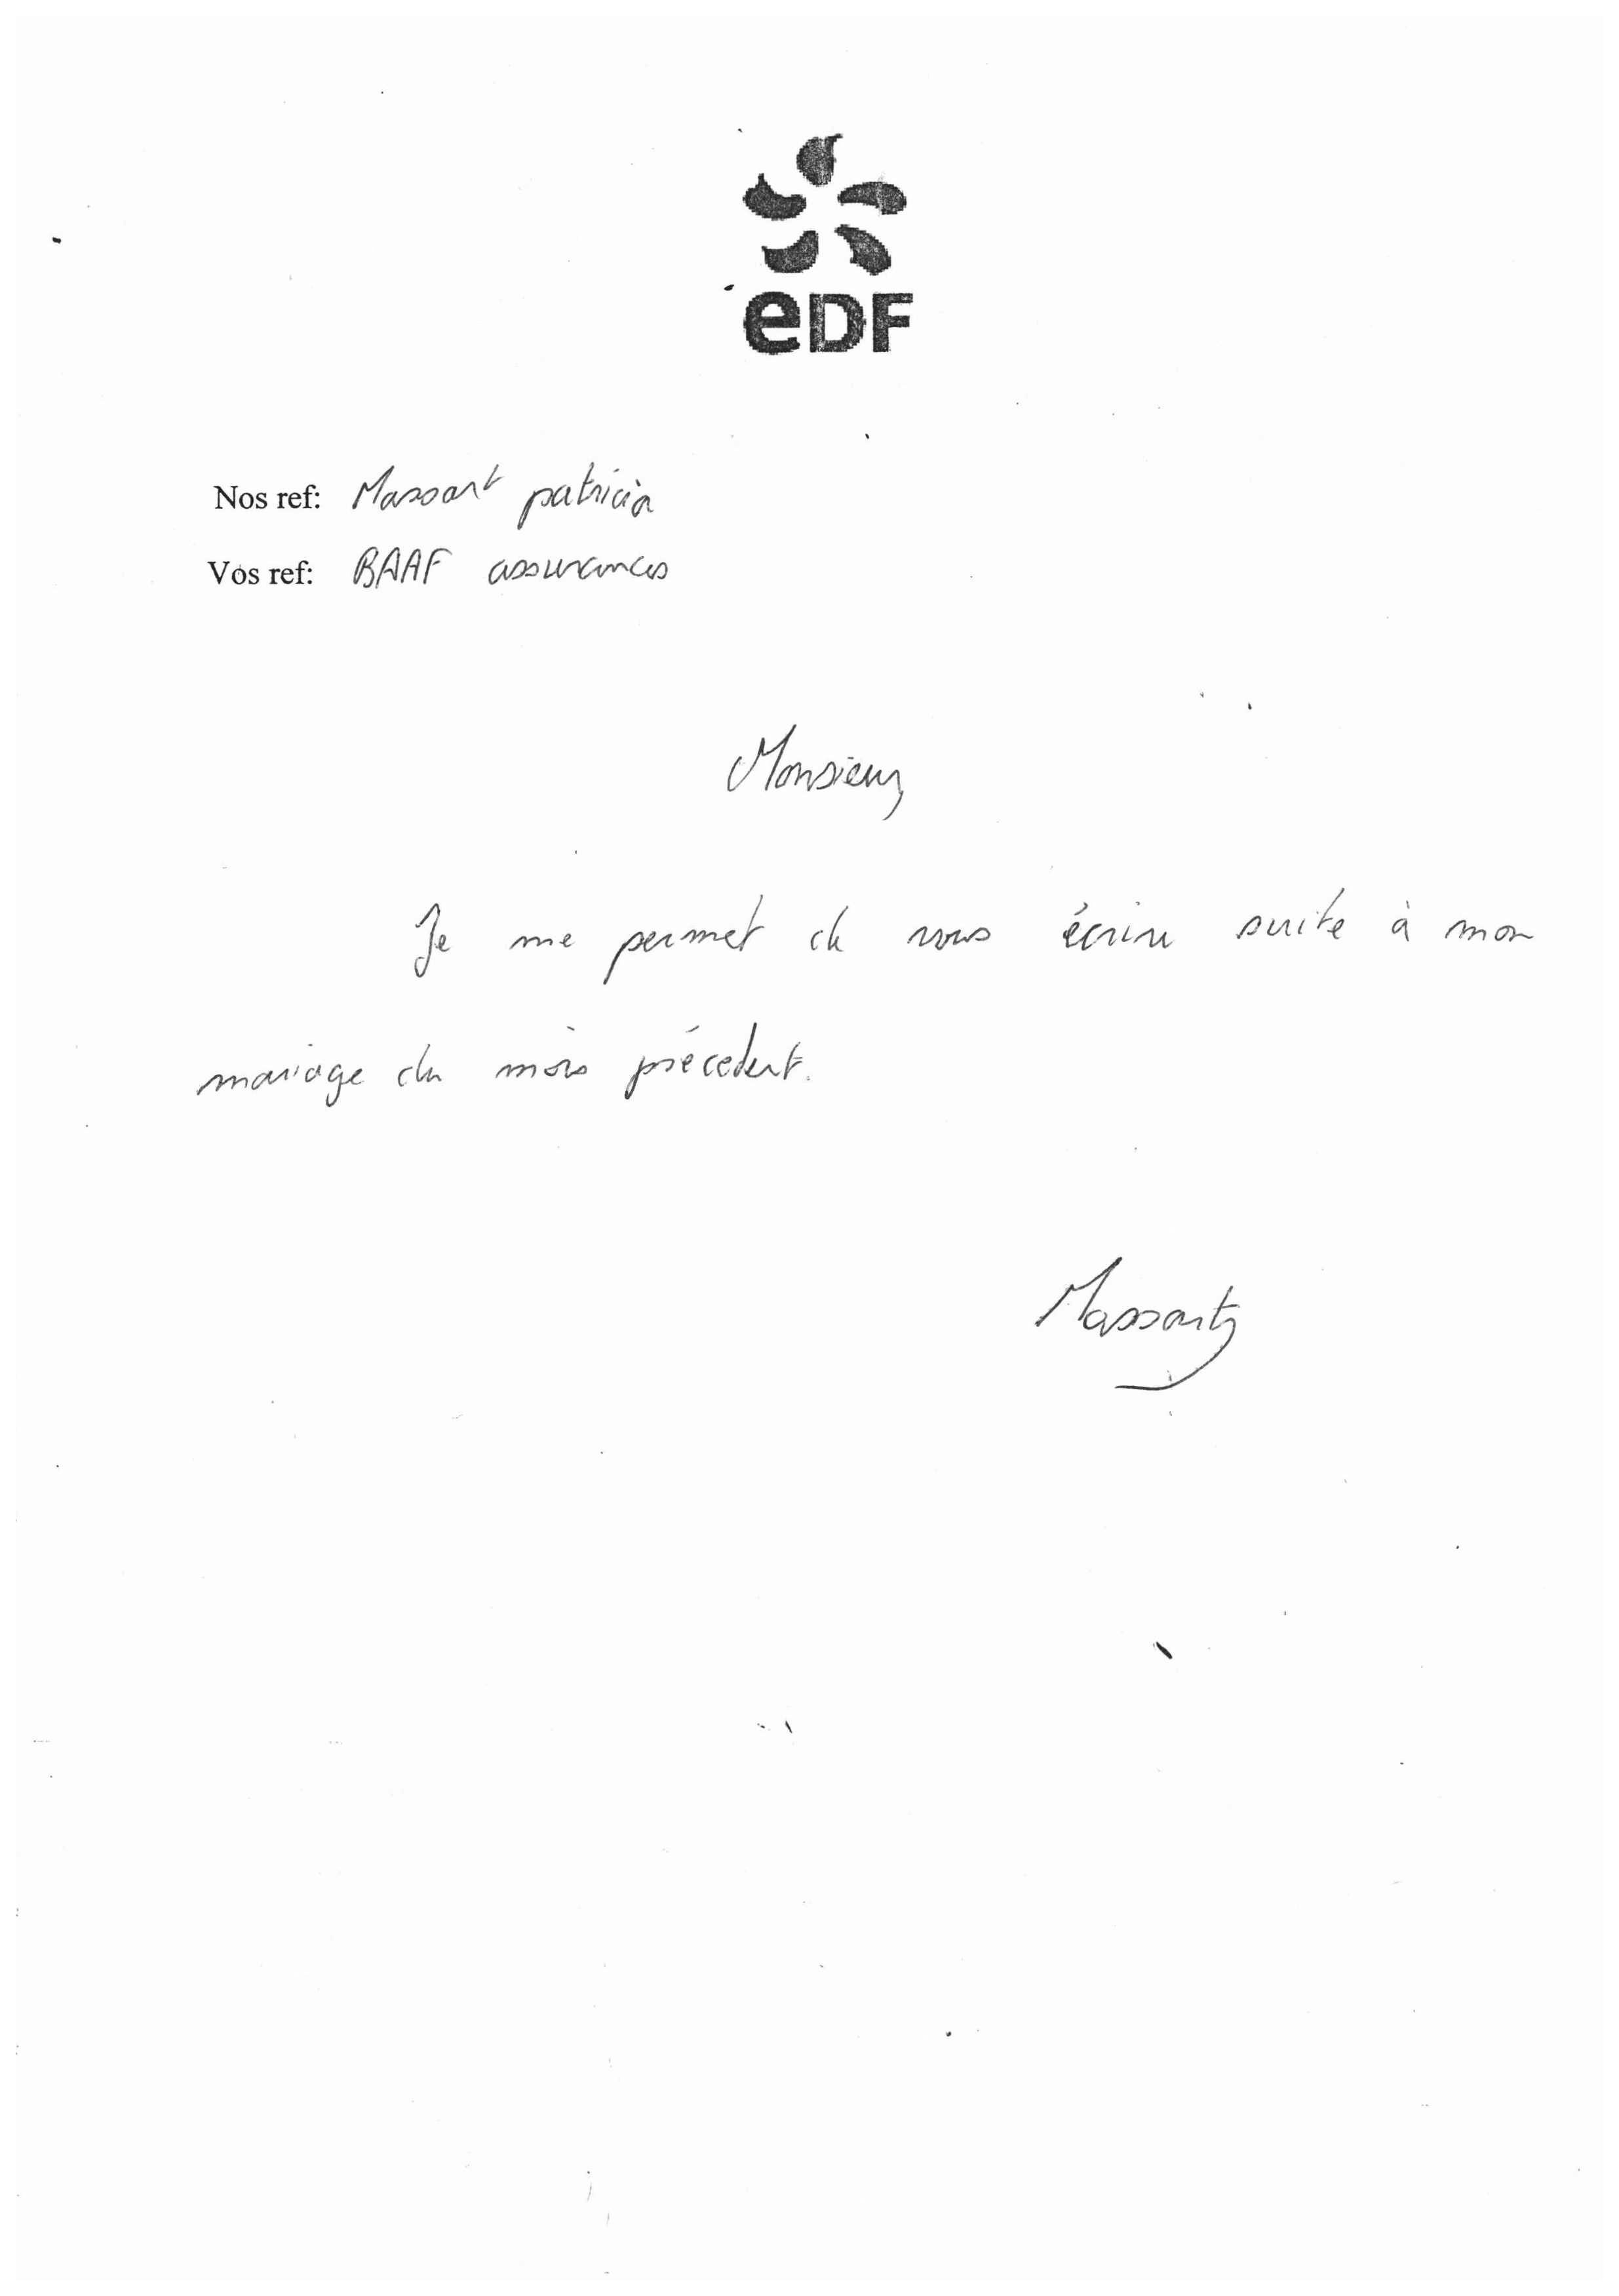 eDF
Nos ref: Massart patricia
Vos ref: BAAF assurances
Monsieur,
Je me permet de vous écrire suite à mon
mariage du mois précedent.
Massart